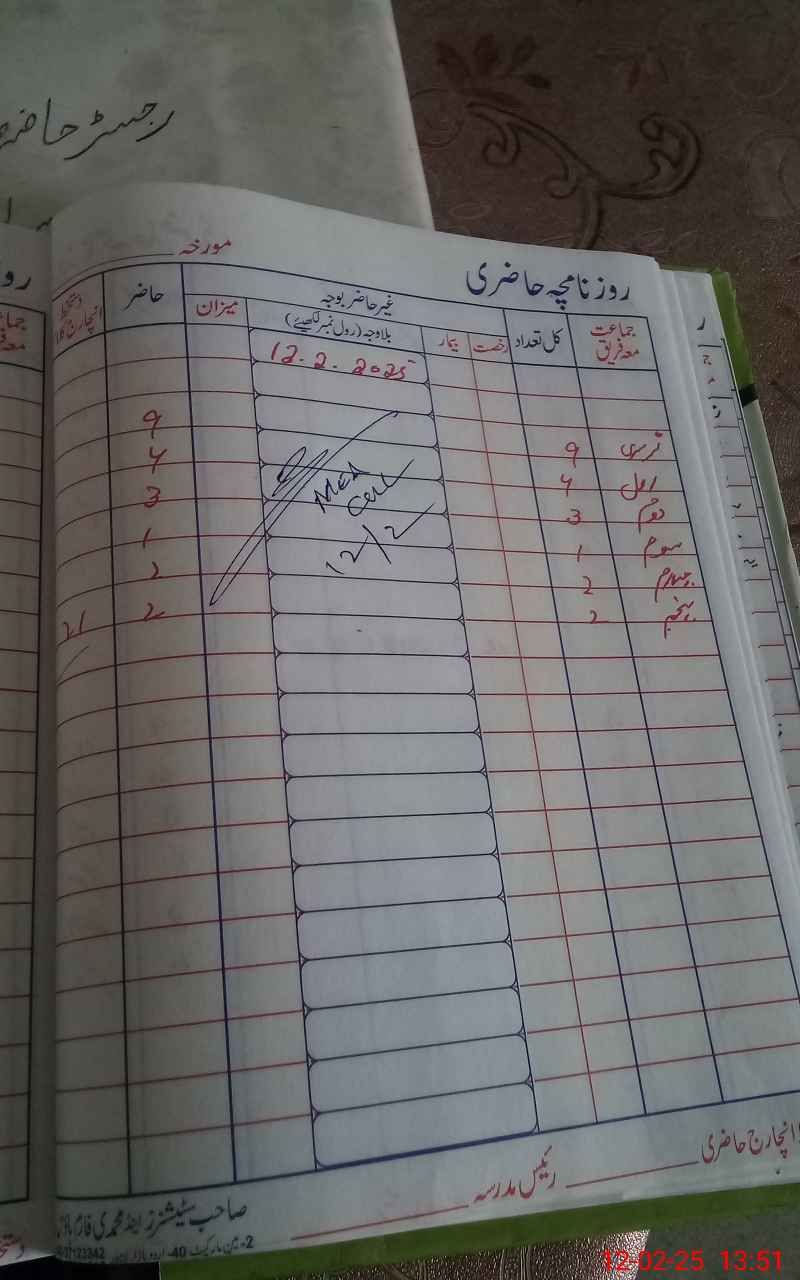 رجسٹر حاضر
روزنامچہ حاضری
مورخہ
جماعت معہ فریق
کل تعداد
غیر حاضر بوجہ
رخصت
بیمار
بلاوجہ (رول نمبر لکھیئے)
میزان
حاضر
دستخط انچارج کلاس
12.2.2025
نرسری 9 9
اول 4 4
دوم 3 3
سوم 1 1
چہارم 2 2
پنجم 2 2 21
MEA
Cell
12/2
انچارج حاضری
رئیس مدرسہ
صاحب سٹیشنرز اینڈ محمدی فارم
2- مین مارکیٹ 40- اردو بازار لاہور
37123342
12-02-25 13:51